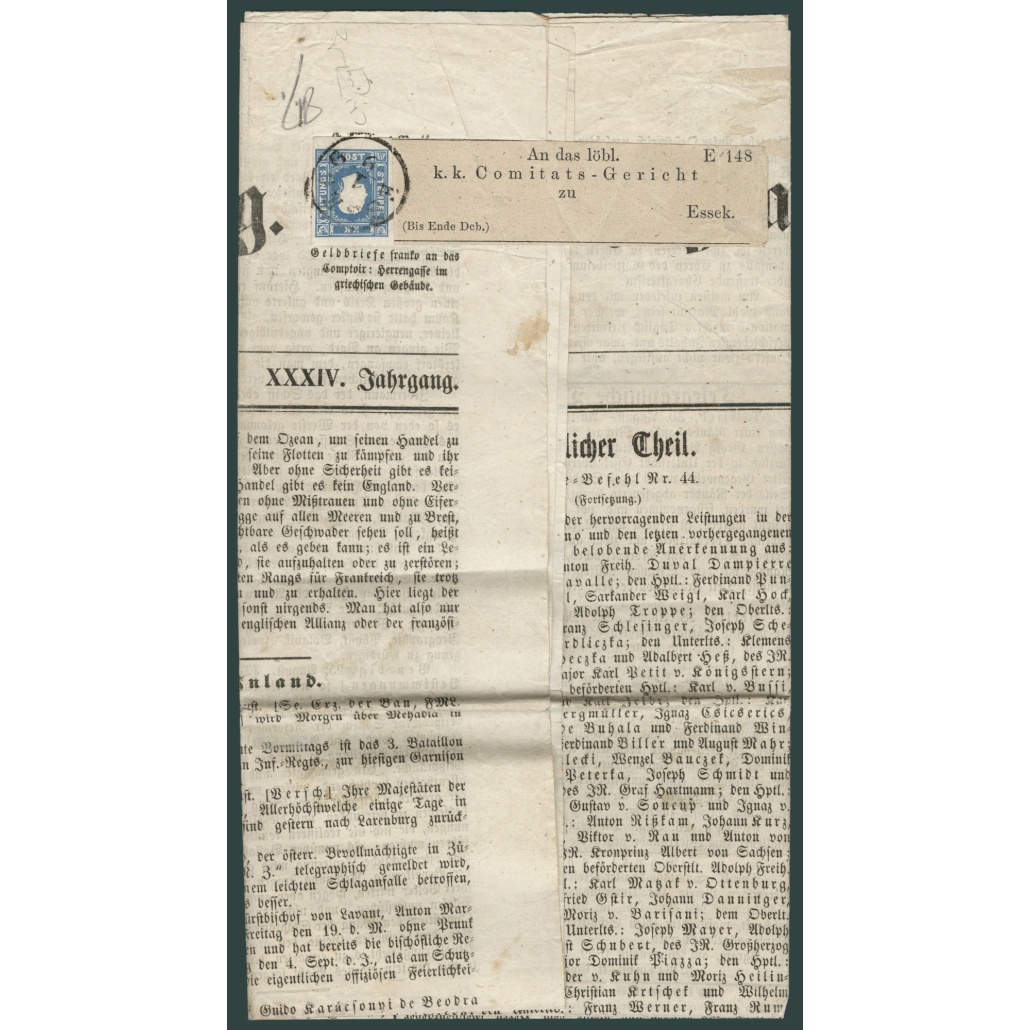 An das löbl. E 148
k. k. Comitats-Gericht
zu
Essek.
(Bis Ende Dcb.)
POST
STEMPEL
KK
g.
Geldbriefe franko an das
Comptoir: Herrengasse im
griechischen Gebäude.
XXXIV. Jahrgang.
dem Ozean, um seinen Handel zu
seine Flotten zu kämpfen und ihr
Aber ohne Sicherheit gibt es kei-
Handel gibt es kein England. Ver-
en ohne Mißtrauen und ohne Eifer-
gge auf allen Meeren und zu Brest,
chtbare Geschwader sehen soll, heißt
, als es geben kann; es ist ein Le-
, sie aufzuhalten oder zu zerstören;
ten Rangs für Frankreich, sie trotz
n und zu erhalten. Hier liegt der
sonst nirgends. Man hat also nur
englischen Allianz oder der französi-
Inland.
[Se. Erz. der Ban, FML.
wird Morgen über Mehadia in
te Vormittags ist das 3. Bataillon
n Inf.-Regts., zur hiesigen Garnison
st. [Versch.] Ihre Majestäten der
, Allerhöchstwelche einige Tage in
sind gestern nach Laxenburg zurück-
, der österr. Bevollmächtigte in Zü-
. Z." telegraphisch gemeldet wird,
nem leichten Schlaganfalle betroffen,
s besser.
ürstbischof von Lavant, Anton Mar-
Freitag den 19. d. M. ohne Prunk
en und hat bereits die bischöfliche Re-
g den 4. Sept. d. J., als am Schutz-
die eigentlichen offiziösen Feierlichkei-
Guido Karácsonyi de Beodra
licher Theil.
e-Befehl Nr. 44.
(Fortsetzung.)
der hervorragenden Leistungen in der
no und den letzten vorhergegangenen
belobende Anerkennung aus:
nton Freih. Duval Dampierre
avalle; den Hptl.: Ferdinand Pun-
l, Sarkander Weigl, Karl Hock,
Adolph Troppe; den Oberlts.:
ranz Schlesinger, Joseph Sche-
rdliczka; den Unterlts.: Klemens
peczka und Adalbert Heß, des IR.
ajor Karl Petit v. Königsstern;
beförderten Hptl.: Karl v. Bussi,
ergmüller, Ignaz Csicserics,
de Buhala und Ferdinand Win-
Ferdinand Biller und August Mahr;
lecki, Wenzel Bauczek, Dominik
Peterka, Joseph Schmidt und
des IR. Graf Hartmann; den Hptl.:
Gustav v. Soucup und Ignaz v.
.: Anton Rißkam, Johann Kurz,
Viktor v. Rau und Anton von
IR. Kronprinz Albert von Sachsen;
en beförderten Oberstlt. Adolph Freih.
l.: Karl Matzak v. Ottenburg,
fried Gstir, Johann Danninger,
Moriz v. Barisani; dem Oberlt.
Unterlts.: Joseph Mayer, Adolph
st Schubert, des IR. Großherzog
jor Dominik Piazza; den Hptl.:
der v. Kuhn und Moriz Heilin-
Christian Krtschek und Wilhelm
: Franz Werner, Franz Rum